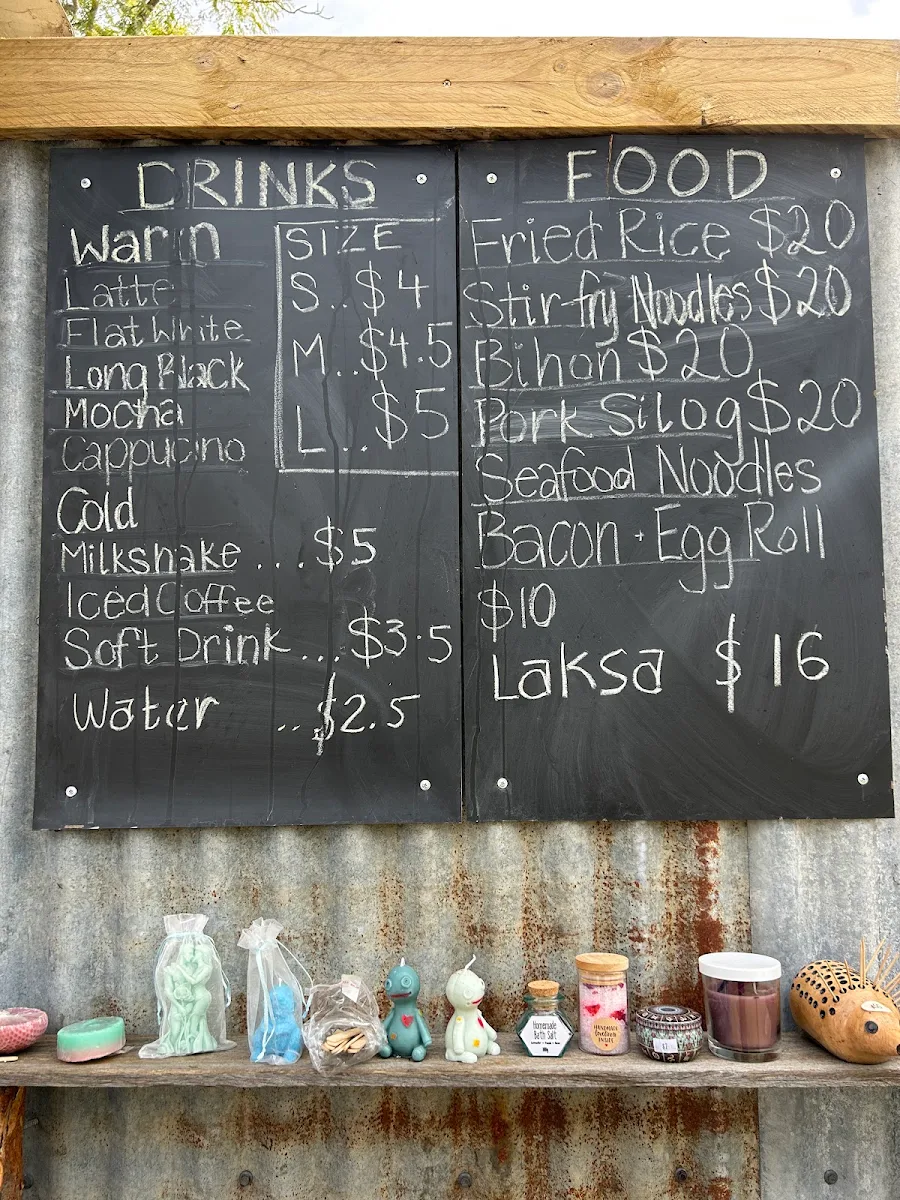 DRINKS
Warm
Latte
Flat White
Long Black
Mocha
Cappucino
SIZE
S..$4
M..$4.5
L..$5
Cold
Milkshake ...$5
Iced Coffee
Soft Drink ...$3.5
Water ..$2.5
FOOD
Fried Rice $20
Stir-fry Noodles $20
Bihon $20
Pork Silog $20
Seafood Noodles
Bacon + Egg Roll
$10
Laksa $16
Homemade
Bath Salt
HANDMADE